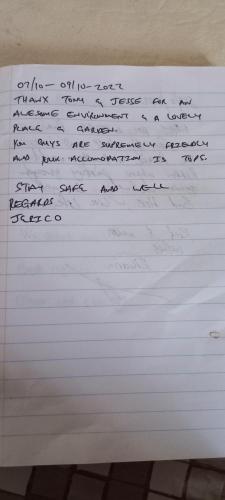 07/10 - 09/10-2022
THANX TONY & JESSE FOR AN
AWESOME ENVIRONMENT & A LOVELY
PLACE & GARDEN.
YOU GUYS ARE SUPREMELY FRIENDLY
AND YOUR ACCOMODATION IS TOPS.
STAY SAFE AND WELL
REGARDS
JERICO